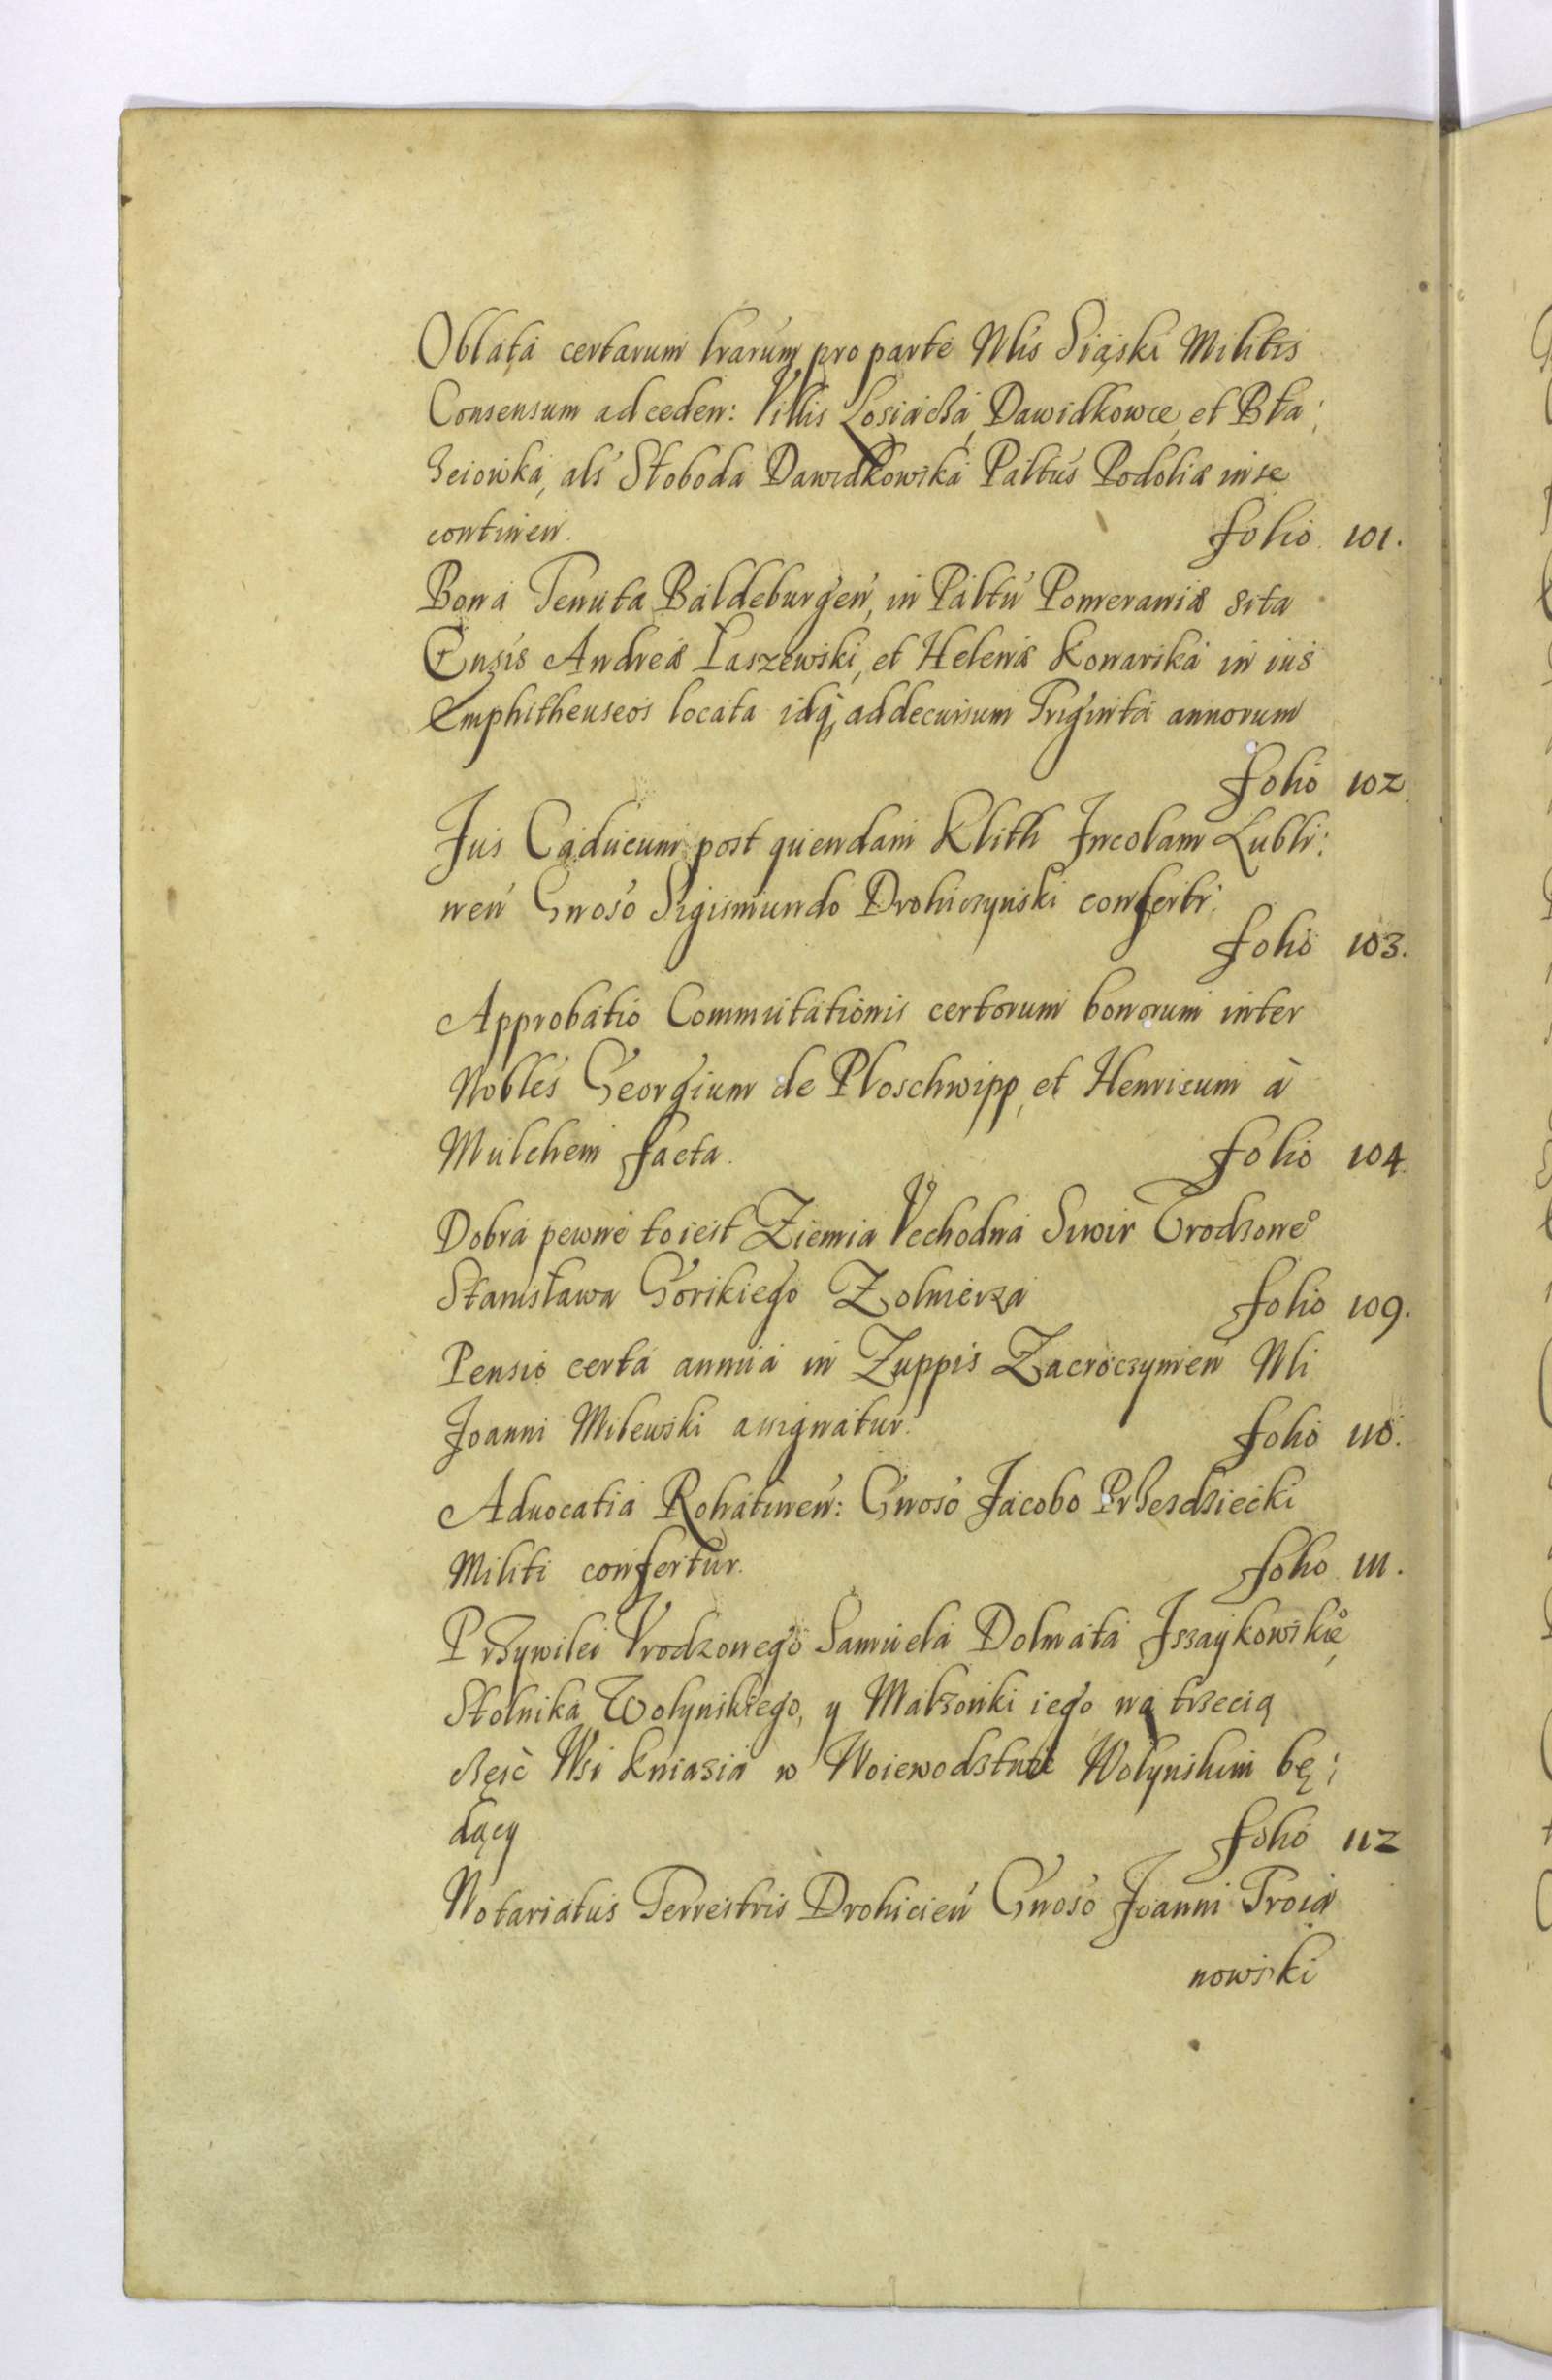 Oblata certarum lrarum pro parte Nlis Siąski Militis
Consensum ad ceden: Villis Łosiacza, Dawidkowce, et Bła:
żeiowka, als Słoboda Dawidkowska Paltus Podoliæ in se
continen. folio 101.
Bona Tenuta Baldeburgen, in Paltu Pomeraniæ sita
Gnsis Andreæ Łaszewski, et Helenæ Konarska in ius
Emphitheuseos locata idq, ad decursum Triginta annorum
folio 102
Jus Caducum post quendam Klith Incolam Lubli:
nen Gnoso Sigismundo Drohiczynski confertr.
folio 103.
Approbatio Commutationis certorum bonorum inter
Nobles Georgium de Ploschwipp, et Henricum à
Mulchem facta. folio 104.
Dobra pewne to iest Ziemia Vechodna Swir Vrodzone°
Stanisława Gorskiego Zolnierza folio 109.
Pensio certa annua in Zuppis Zacroczymen Nli
Joanni Milewski assignatur. folio 110.
Aduocatia Rohatinen: Gnoso Jacobo Przezdziecki
Militi confertur. folio 111.
Przywilei Vrodzonego Samuela Dolmata Iszaykowskie°,
Stolnika Wolynskiego, y Małzonki iego na trzecią
część Wsi Kniazia w Woiewodstwie Wolynskim bę:
dący folio 112
Notariatus Terrestris Drohicien Gnoso Joanni Troia
nowski